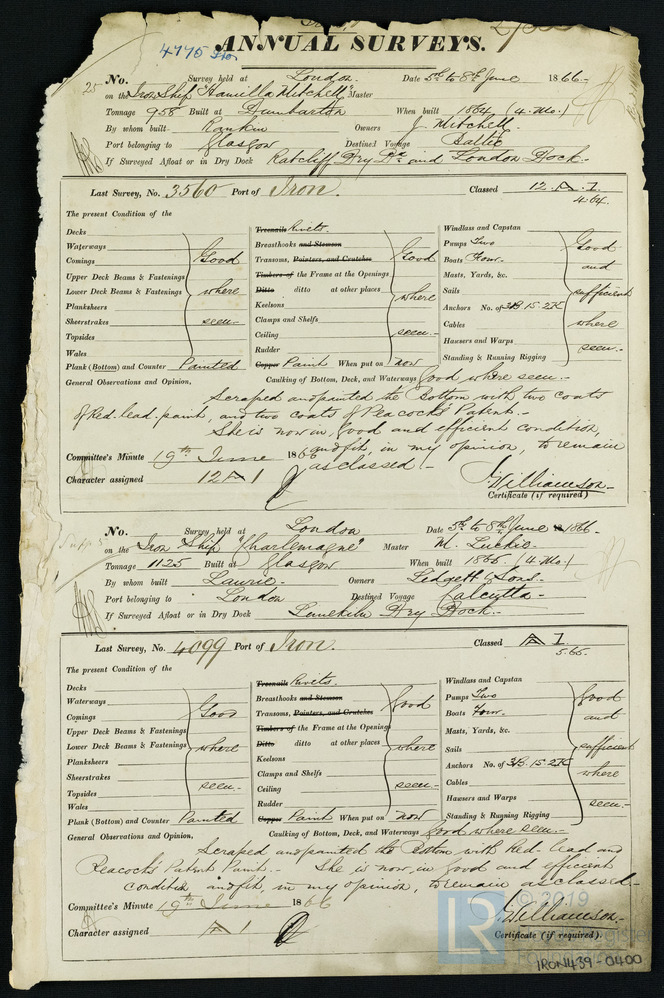 4775 Iron
ANNUAL SURVEYS.
25 No. Survey held at London. Date 5th to 8th June 1866-
on the Iron Ship "Hamilla Mitchell" Master
Tonnage 958 Built at Dumbarton When built 1864 (4. Mo.)
By whom built Rankin Owners J. Mitchell.
Port belonging to Glasgow Destined Voyage Baltic
If Surveyed Afloat or in Dry Dock Ratcliff Dry Dk and London Dock.
Last Survey, No. 3560 Port of Iron. Classed 12. A. 1.
4.64.
The present Condition of the
Decks
Waterways
Comings
Upper Deck Beams & Fastenings
Lower Deck Beams & Fastenings
Planksheers
Sheerstrakes
Topsides
Wales
Good where seen.-
Plank (Bottom) and Counter Painted
Treenails Rivets.
Breasthooks and Stemson
Transoms, Pointers, and Crutches
Timbers of the Frame at the Openings
Ditto ditto at other places
Keelsons
Clamps and Shelfs
Ceiling
Rudder
Good where seen.-
Copper Paint When put on now
Windlass and Capstan
Pumps Two
Boats Four.
Masts, Yards, &c.
Sails
Anchors No. of 3B. 15. 2K
Cables
Hawsers and Warps
Standing & Running Rigging
Good and sufficient where seen.-
General Observations and Opinion, Caulking of Bottom, Deck, and Waterways Good where seen.-
Scraped and painted the Bottom with two coats
of Red. lead. paint, and two coats of Peacock's Patent.-
She is now in, Good and efficient condition,
and fit, in my opinion, to remain
as classed.-
Committee's Minute 19th June 1866
Character assigned 12 A 1
J. Williamson-
Certificate (if required)
No. Survey held at London Date 5th to 8th June 1866-
on the Iron Ship "Charlemagne" Master M. Luckie-
Tonnage 1125 Built at Glasgow When built 1865 (4. Mo.)
By whom built Laurie- Owners Lidgett & Sons.
Port belonging to London Destined Voyage Calcutta-
If Surveyed Afloat or in Dry Dock Limekiln Dry Dock.
Last Survey, No. 4099 Port of Iron. Classed A 1
5.65.
The present Condition of the
Decks
Waterways
Comings
Upper Deck Beams & Fastenings
Lower Deck Beams & Fastenings
Planksheers
Sheerstrakes
Topsides
Wales
Good where seen-
Plank (Bottom) and Counter Painted
Treenails Rivets.
Breasthooks and Stemson
Transoms, Pointers, and Crutches
Timbers of the Frame at the Openings
Ditto ditto at other places
Keelsons
Clamps and Shelfs
Ceiling
Rudder
Good where seen-
Copper Paint When put on now
Windlass and Capstan
Pumps Two
Boats Four.
Masts, Yards, &c.
Sails
Anchors No. of 3B. 15. 2K
Cables
Hawsers and Warps
Standing & Running Rigging
Good and sufficient where seen-
General Observations and Opinion, Caulking of Bottom, Deck, and Waterways Good where seen-
Scraped and painted the Bottom with Red. lead and
Peacock's Patent Paint.- She is now, in Good and efficient
condition and fit, in my opinion, to remain as classed-
Committee's Minute 19th June 1866
Character assigned A 1
J. Williamson-
Certificate (if required).
© 2019
LR
IRON439-0400